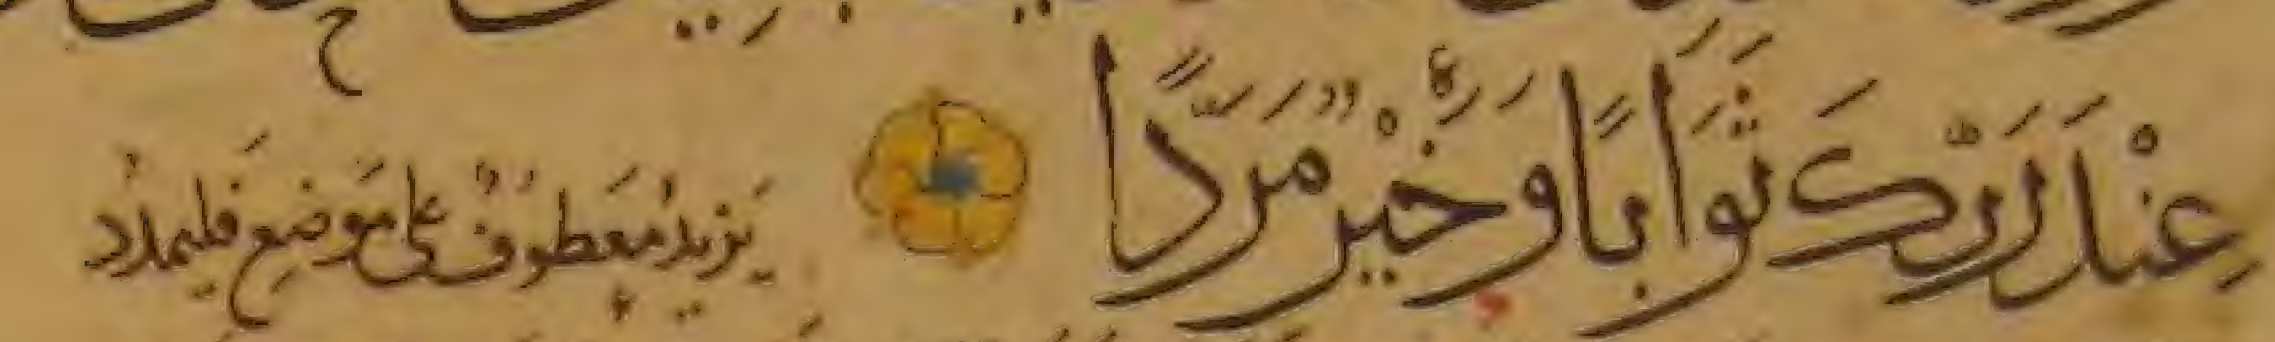 عِنْدَ رَبِّكَ ثَوَابًا وَخَيْرٌ مَرَدًّا يَزِيدُ مَعْطُوفٌ عَلَى مَوْضِعِ فَلْيَمْدُدْ